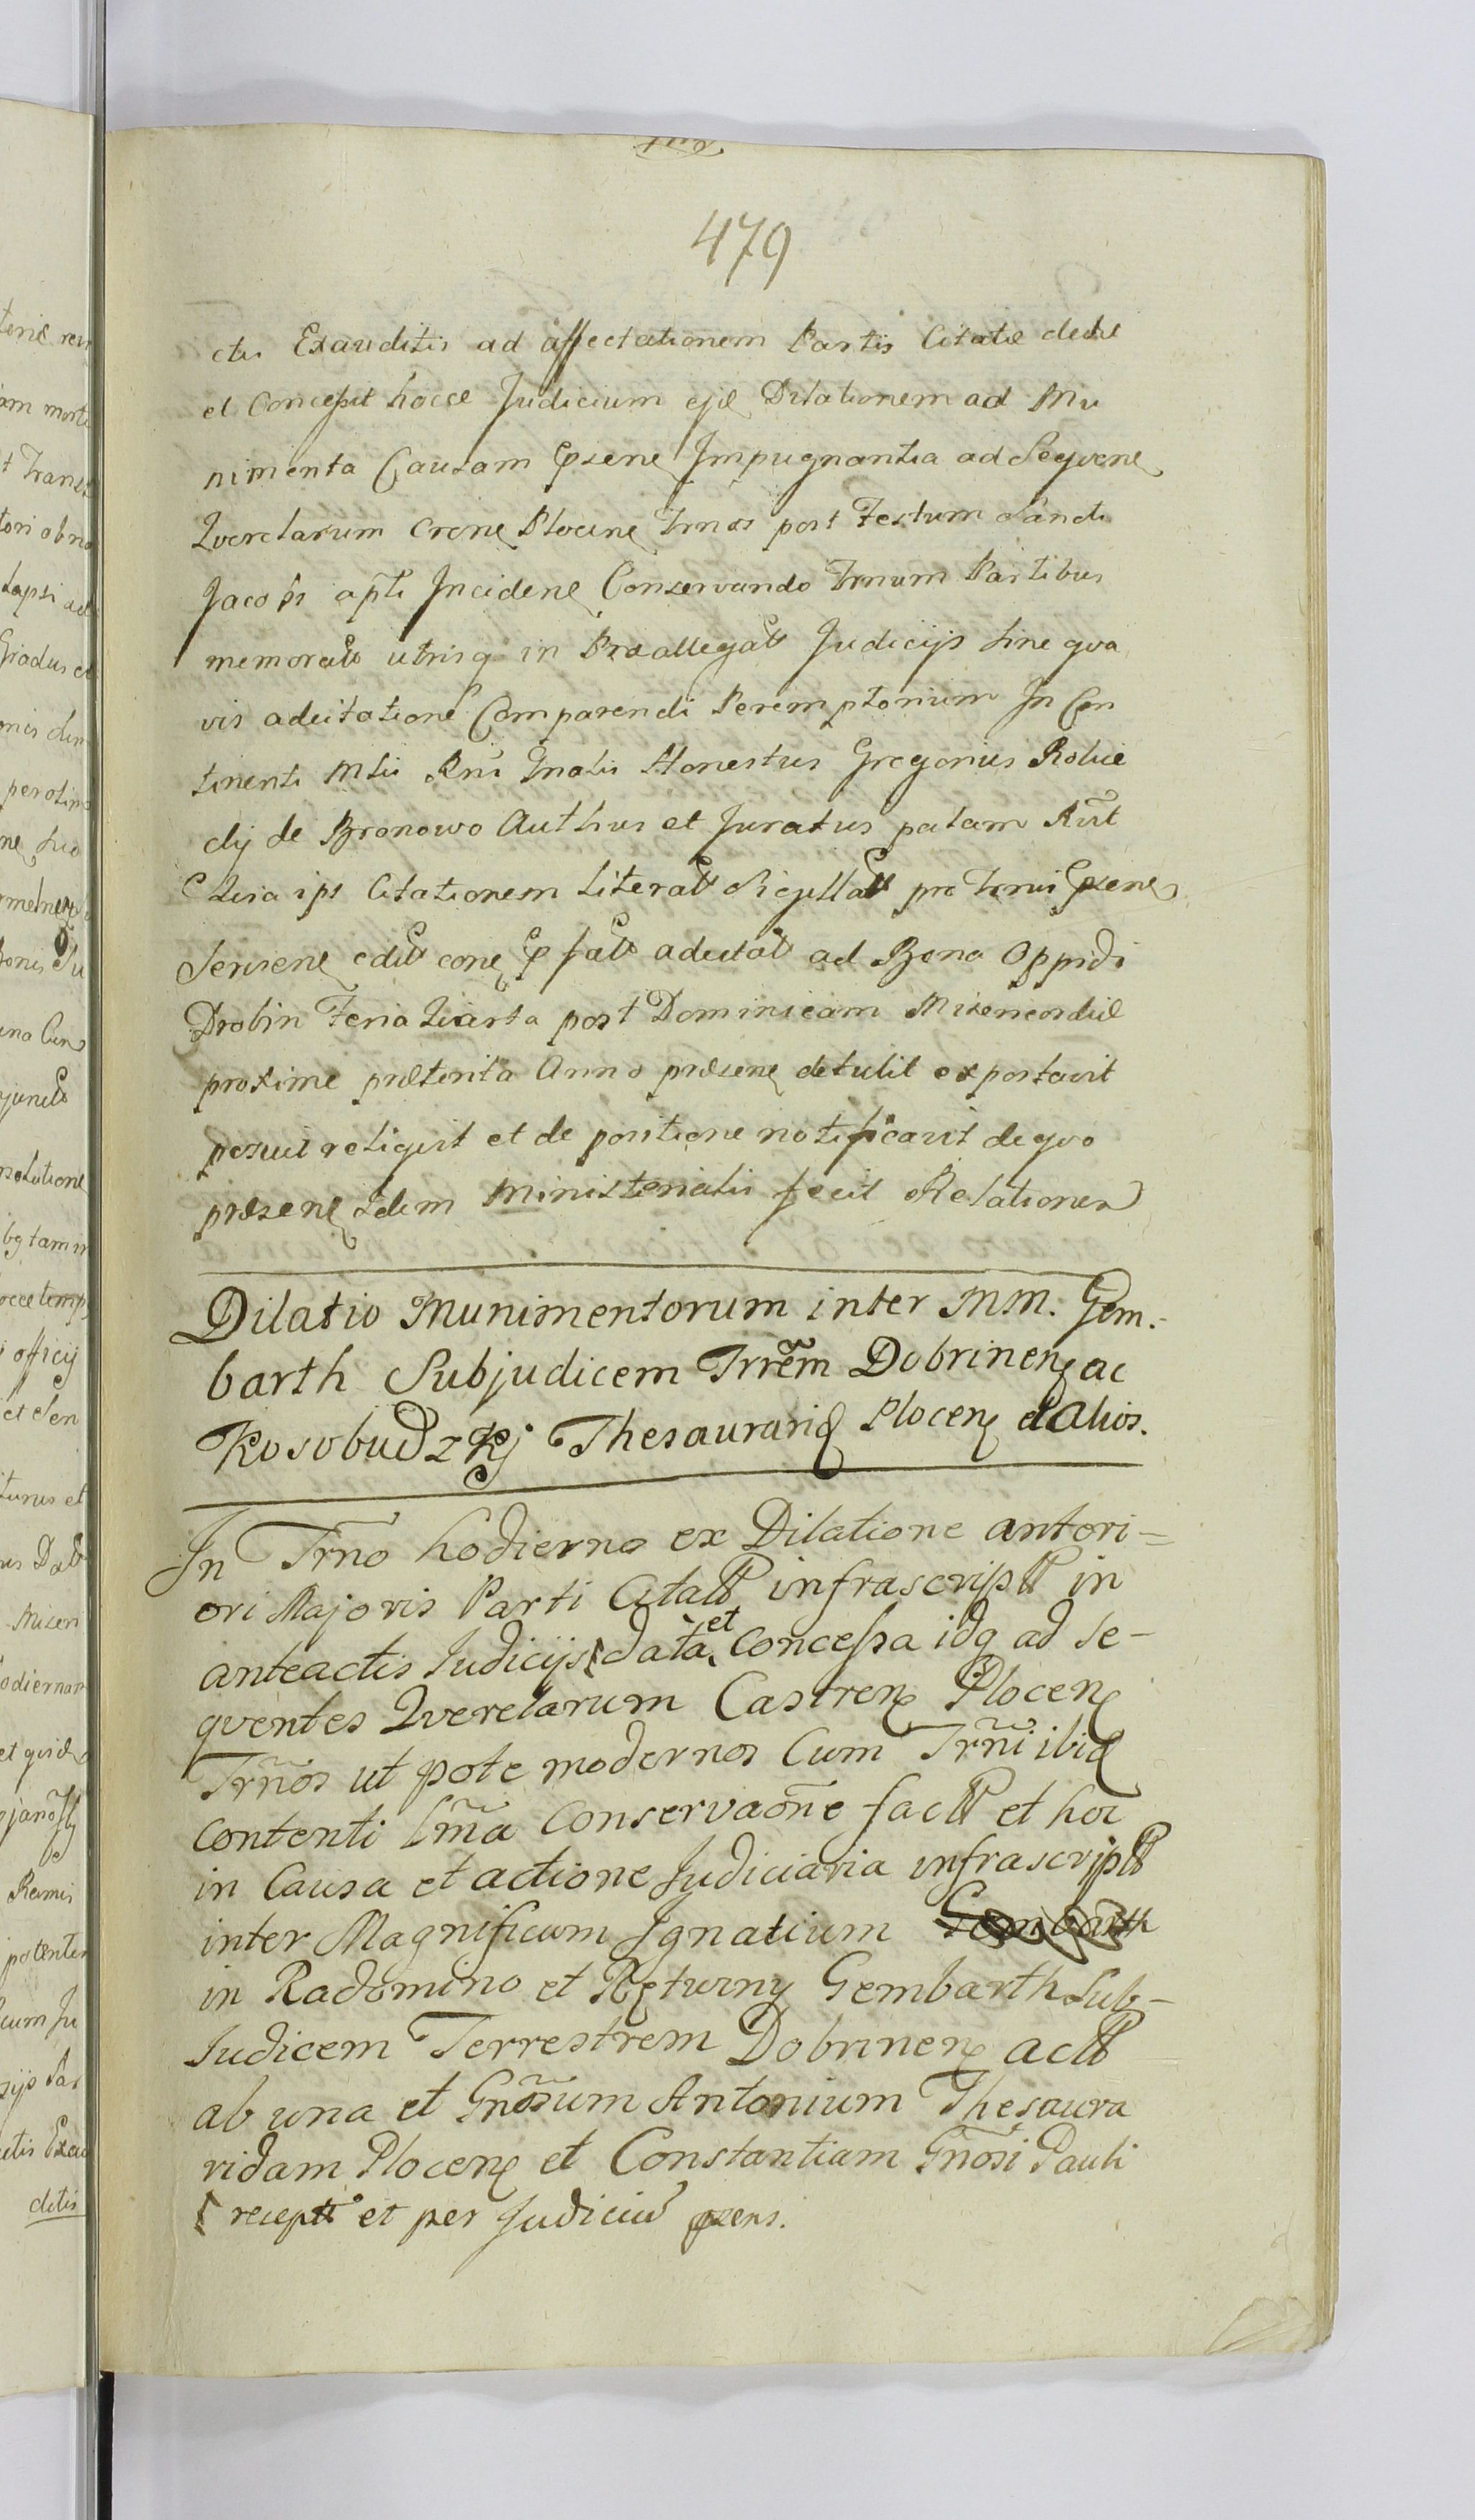 479
ctis Exauditis ad affectationem Partis Citatæ dedit
et Concessit hocce Judicium ejæ Dilationem ad Mu
nimenta Causam præsenę Impugnantia ad Seqvenę
Qverelarum Crenę Plocenę Trnos post Festum Sancti
Jacobi apti Incidenę Conservando Trnum Partibus
memoratt utrisq in Præallegatt Judicijs sine qva
vis adcitatione Comparendi Peremptorium In Con
tinenti Mtii Rni Gnalis Honestus Gregorius Robie
dij de Bronowo Authus et Juratus palam Rvit
Qvia ips Citationem Literatt Sigillatt pro Trnis præsenę
Serviene edit conę p fatt adcitatt ad Bona Oppidi
Drobin Feria Qvarta post Dominicam Misericordiæ
proxime præterita Anno præsenę detulit exportavit
posuit reliqvit et de positione notificavit de qvo
præsenę Idem Ministerialis fecit Relationem
Dilatio Munimentorum inter MM. Gem-
barth Subjudicem Trrem Dobrinenę ac
Kosobudzkj Thesaurarid Plocenę et Alios.
In Trno hodierno ex Dilatione anteri=
ori Majoris Parti Citatt infrascriptt in
anteactis Judicijs data et concessa idq ad Se-
qventes Qverelarum Castrenę Plocenę
Trnos ut pote modernos Cum Trni ibid
contenti lma conservaone factt et hoc
in Causa et actione Judiciaria infrascriptt
inter Magnificum Ignatium Gembarth
in Radomino et Rętwiny Gembarth Sub-
Judicem Terrestrem Dobrinenę actt
ab una et Gnosum Antonium Thesaura
ridam Plocenę et Constantiam Gnosi Pauli
recepti et per Judiciu præns.